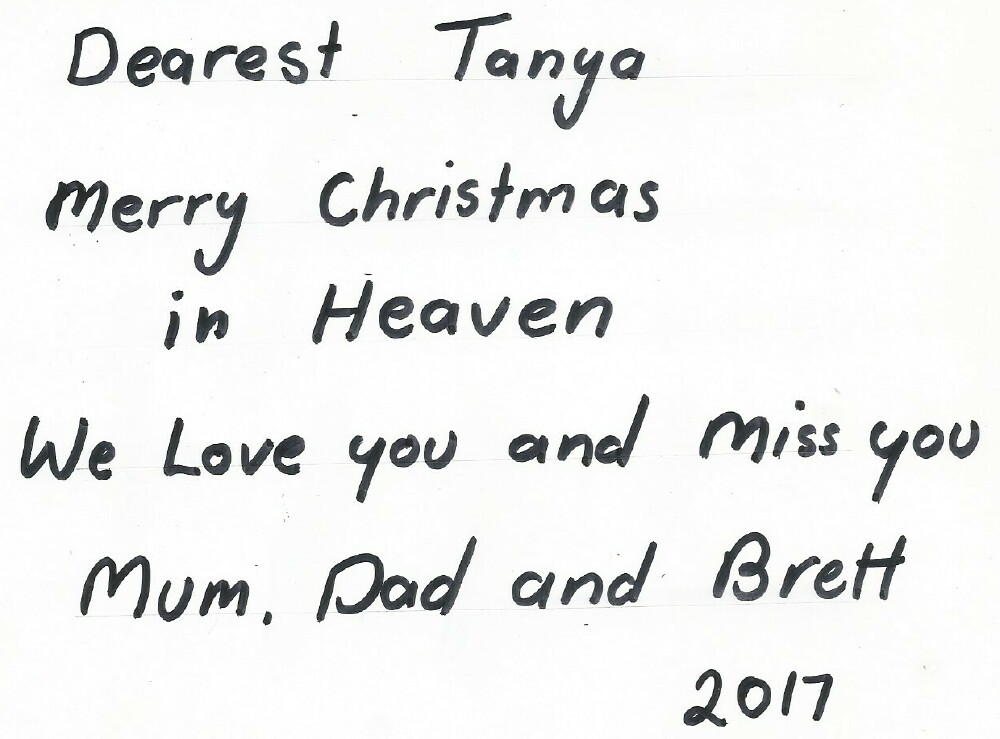 Dearest Tanya
Merry Christmas
in Heaven
We Love you and Miss you
Mum, Dad and Brett
2017